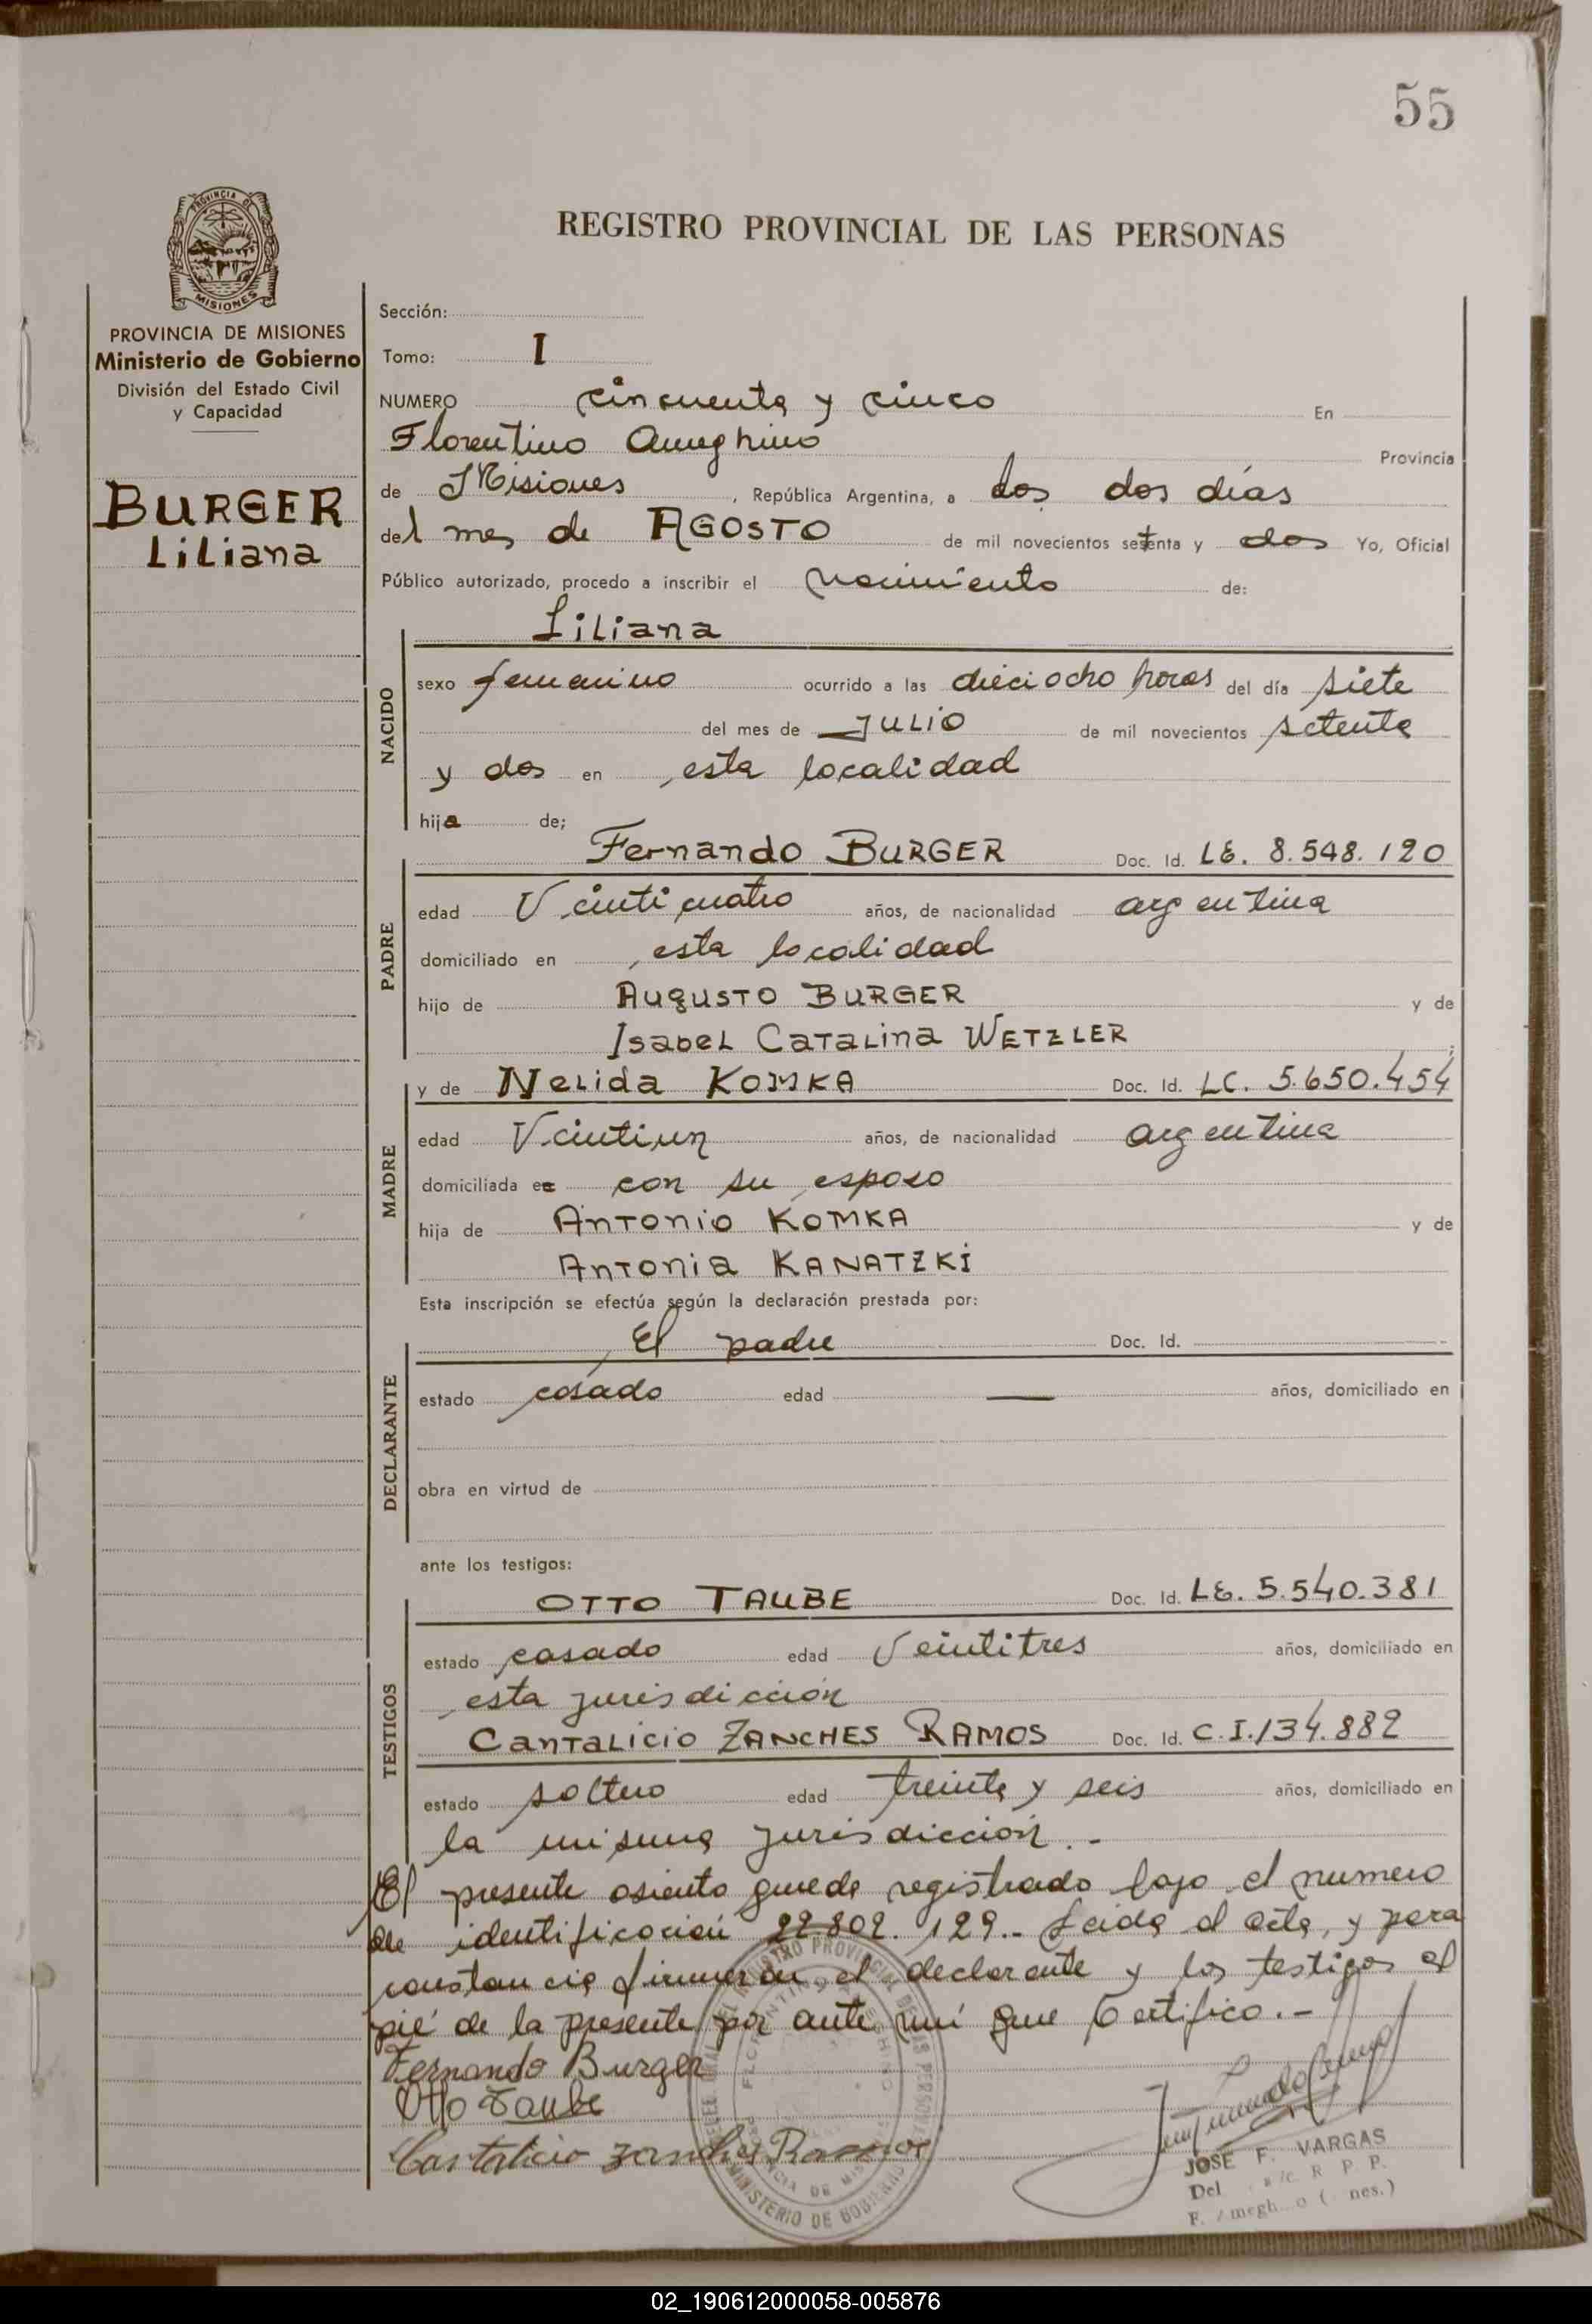 55
PROVINCIA DE
MISIONES
REGISTRO PROVINCIAL DE LAS PERSONAS
PROVINCIA DE MISIONES
Ministerio de Gobierno
División del Estado Civil
y Capacidad
BURGER
Liliana
Sección:
Tomo: I
NUMERO cincuenta y cinco En
Florentino Ameghino Provincia
de Misiones, República Argentina, a los dos días
del mes de AGOSTO de mil novecientos setenta y dos Yo, Oficial
Público autorizado, procedo a inscribir el nacimiento de:
Liliana
NACIDO
sexo femenino ocurrido a las dieciocho horas del día siete
del mes de JULIO de mil novecientos setenta
y dos en esta localidad
hija de;
Fernando BURGER Doc. Id. LE. 8.548.120
PADRE
edad Veinticuatro años, de nacionalidad argentina
domiciliado en esta localidad
hijo de Augusto BURGER y de
Isabel Catalina WETZLER
y de Nelida KOMKA Doc. Id. LC. 5.650.454
MADRE
edad Veintiun años, de nacionalidad argentina
domiciliada en con su esposo
hija de Antonio KOMKA y de
Antonia KANATZKI
Esta inscripción se efectúa según la declaración prestada por:
El padre Doc. Id.
DECLARANTE
estado casado edad — años, domiciliado en
obra en virtud de
ante los testigos:
OTTO TAUBE Doc. Id. LE. 5.540.381
TESTIGOS
estado casado edad Veintitres años, domiciliado en
esta jurisdicción
Cantalicio ZANCHES RAMOS Doc. Id. C.I. 134.882
estado soltero edad treinta y seis años, domiciliado en
la misma jurisdicción.-
El presente asiento queda registrado bajo el numero
de identificación 22.802.129.- Leida el acta, y para
constancia firmaran el declarante y los testigos al
pié de la presente por ante mi que Certifico.-
Fernando Burger
Otto Taube
Cantalicio Zanches Ramos
JOSE F. VARGAS
Del a/c R P P.
MINISTERIO DE GOBIERNO
02_190612000058-005876